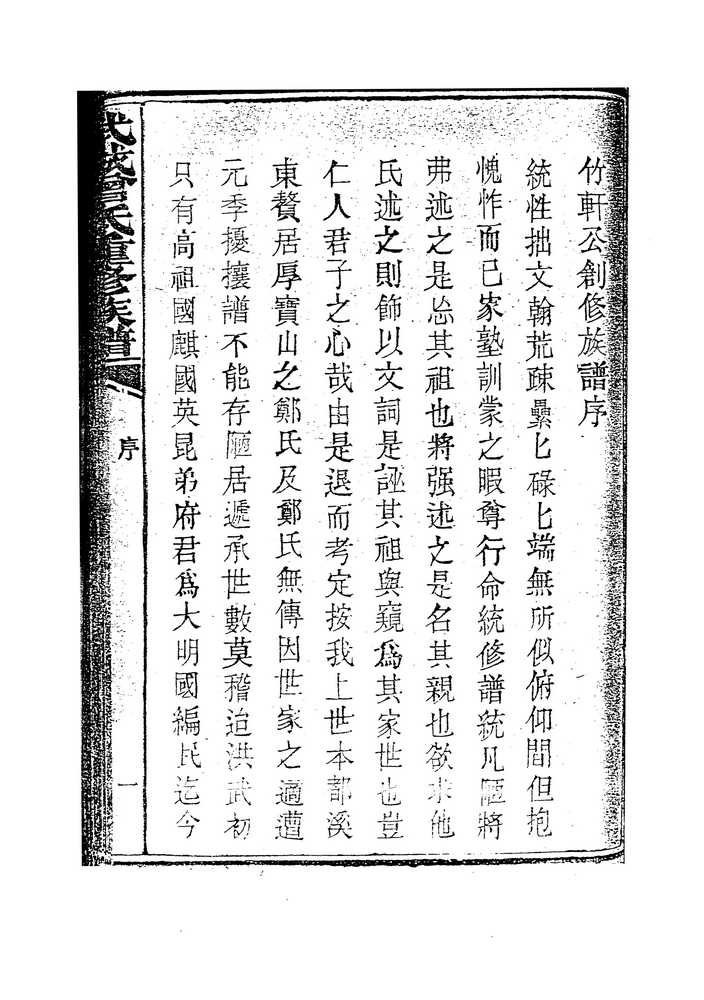 竹軒公創修族譜序
統性拙文翰荒疎纍匕碌匕端無所似俯仰間但抱
愧怍而已家塾訓蒙之暇尊行命統修譜統凡陋將
弗述之是忘其祖也將强述之是名其親也欲求他
氏述之則飾以文詞是誣其祖與竊爲其家世也豈
仁人君子之心哉由是退而考定按我上世本都溪
東贅居厚寶山之鄭氏及鄭氏無傳因世家之適遭
元季擾攘譜不能存陋居遞承世數莫稽迨洪武初
只有高祖國麒國英昆弟府君爲大明國編民迄今
武城曾氏重修族譜
序
一